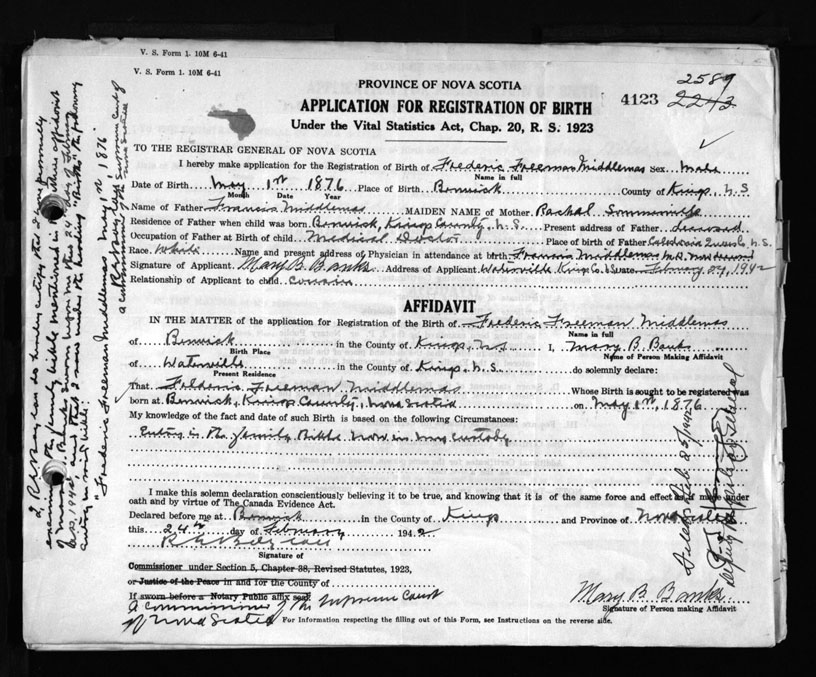 V. S. Form 1. 10M 6-41
V. S. Form 1. 10M 6-41
PROVINCE OF NOVA SCOTIA
2589
4123 2243
APPLICATION FOR REGISTRATION OF BIRTH
Under the Vital Statistics Act, Chap. 20, R. S. 1923
TO THE REGISTRAR GENERAL OF NOVA SCOTIA
I hereby make application for the Registration of Birth of Frederic Freeman Middlemas Sex Male
Name in full
Date of Birth May 1st 1876 Place of Birth Berwick County of Kings, N.S
Month Date Year
Name of Father Francis Middlemas MAIDEN NAME of Mother Rachal
Residence of Father when child was born Berwick, Kings County, N.S. Present address of Father deceased
Occupation of Father at Birth of child Medical Doctor Place of birth of Father Caledonia Queens Co, N.S.
Race White Name and present address of Physician in attendance at birth Francis Middlemas M.D. deceased
Signature of Applicant Mary B. Banks Address of Applicant Waterville Kings Co N.S. Date February 24, 1942
Relationship of Applicant to child Cousin
AFFIDAVIT
IN THE MATTER of the application for Registration of the Birth of Frederic Freeman Middlemas
Name in full
of Berwick in the County of Kings, N.S. I, Mary B. Banks
Birth Place Name of Person Making Affidavit
of Waterville in the County of Kings, N.S. do solemnly declare:
Present Residence
That Frederic Freeman Middlemas Whose Birth is sought to be registered was
born at Berwick, Kings County, Nova Scotia on May 1st, 1876
My knowledge of the fact and date of such Birth is based on the following Circumstances:
Entry in the family Bible now in my custody
I make this solemn declaration conscientiously believing it to be true, and knowing that it is of the same force and effect as if made under
oath and by virtue of The Canada Evidence Act.
Declared before me at Berwick in the County of Kings and Province of Nova Scotia
this 24th day of February 1942
Signature of
Commissioner under Section 5, Chapter 38, Revised Statutes, 1923,
or Justice of the Peace in and for the County of
If sworn before a Notary Public affix seal
A Commissioner of the Supreme Court
of Nova Scotia
Mary B. Banks
Signature of Person making Affidavit
For Information respecting the filling out of this Form, see Instructions on the reverse side.
do hereby certify that I have personally
examined the family bible mentioned in the above affidavit
of Mary B. Banks sworn before me this 24th day of February
A.D. 1942, and that I saw under the heading "Births" the following
entry in said bible:
"Frederic Freeman Middlemas, May 1st, 1876"
a Commissioner of the Supreme Court of
Nova Scotia
Filed Feb. 25/1942
Deputy Registrar General